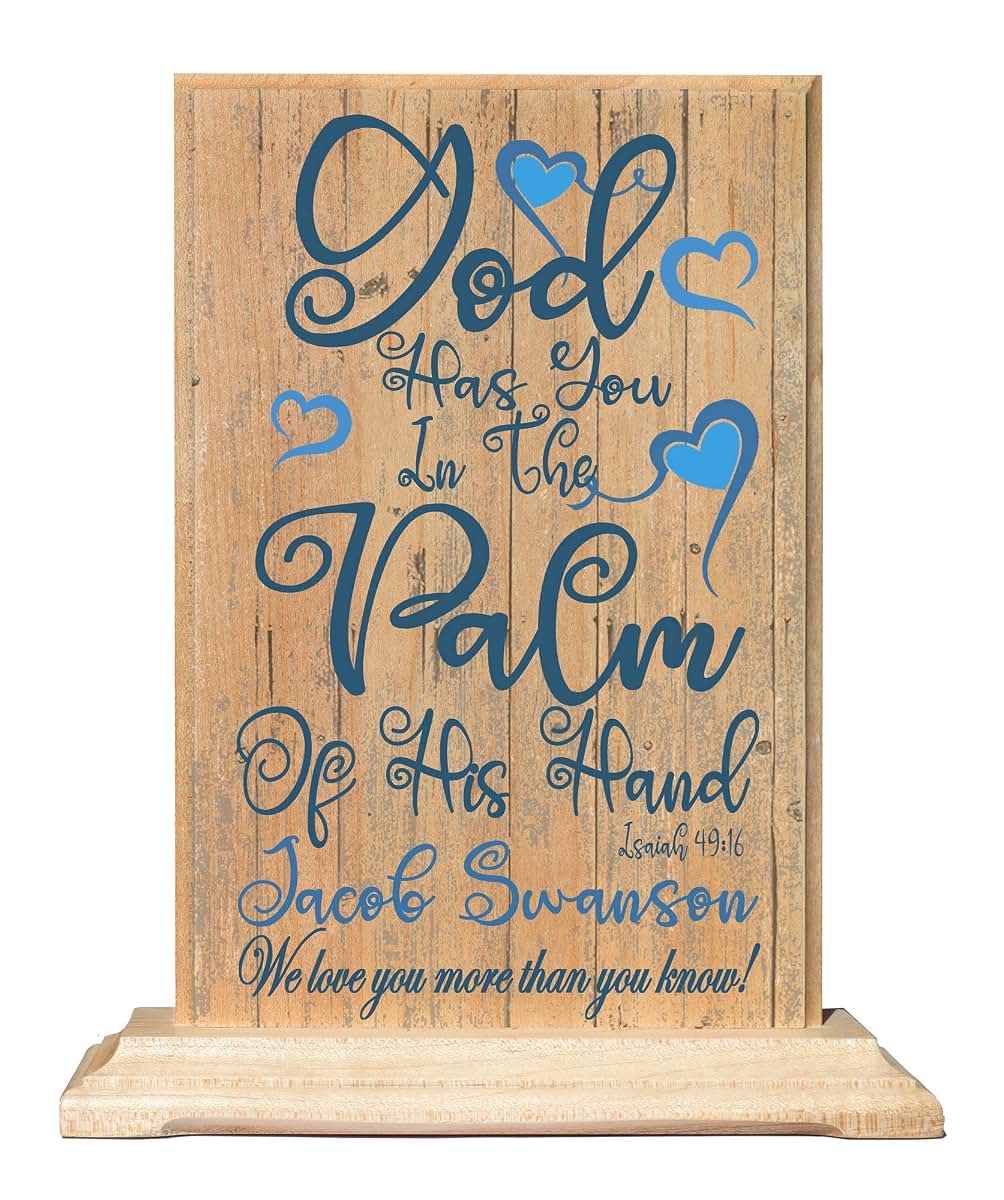 God
Has You
In The
Palm
Of His Hand
Isaiah 49:16
Jacob Swanson
We love you more than you know!